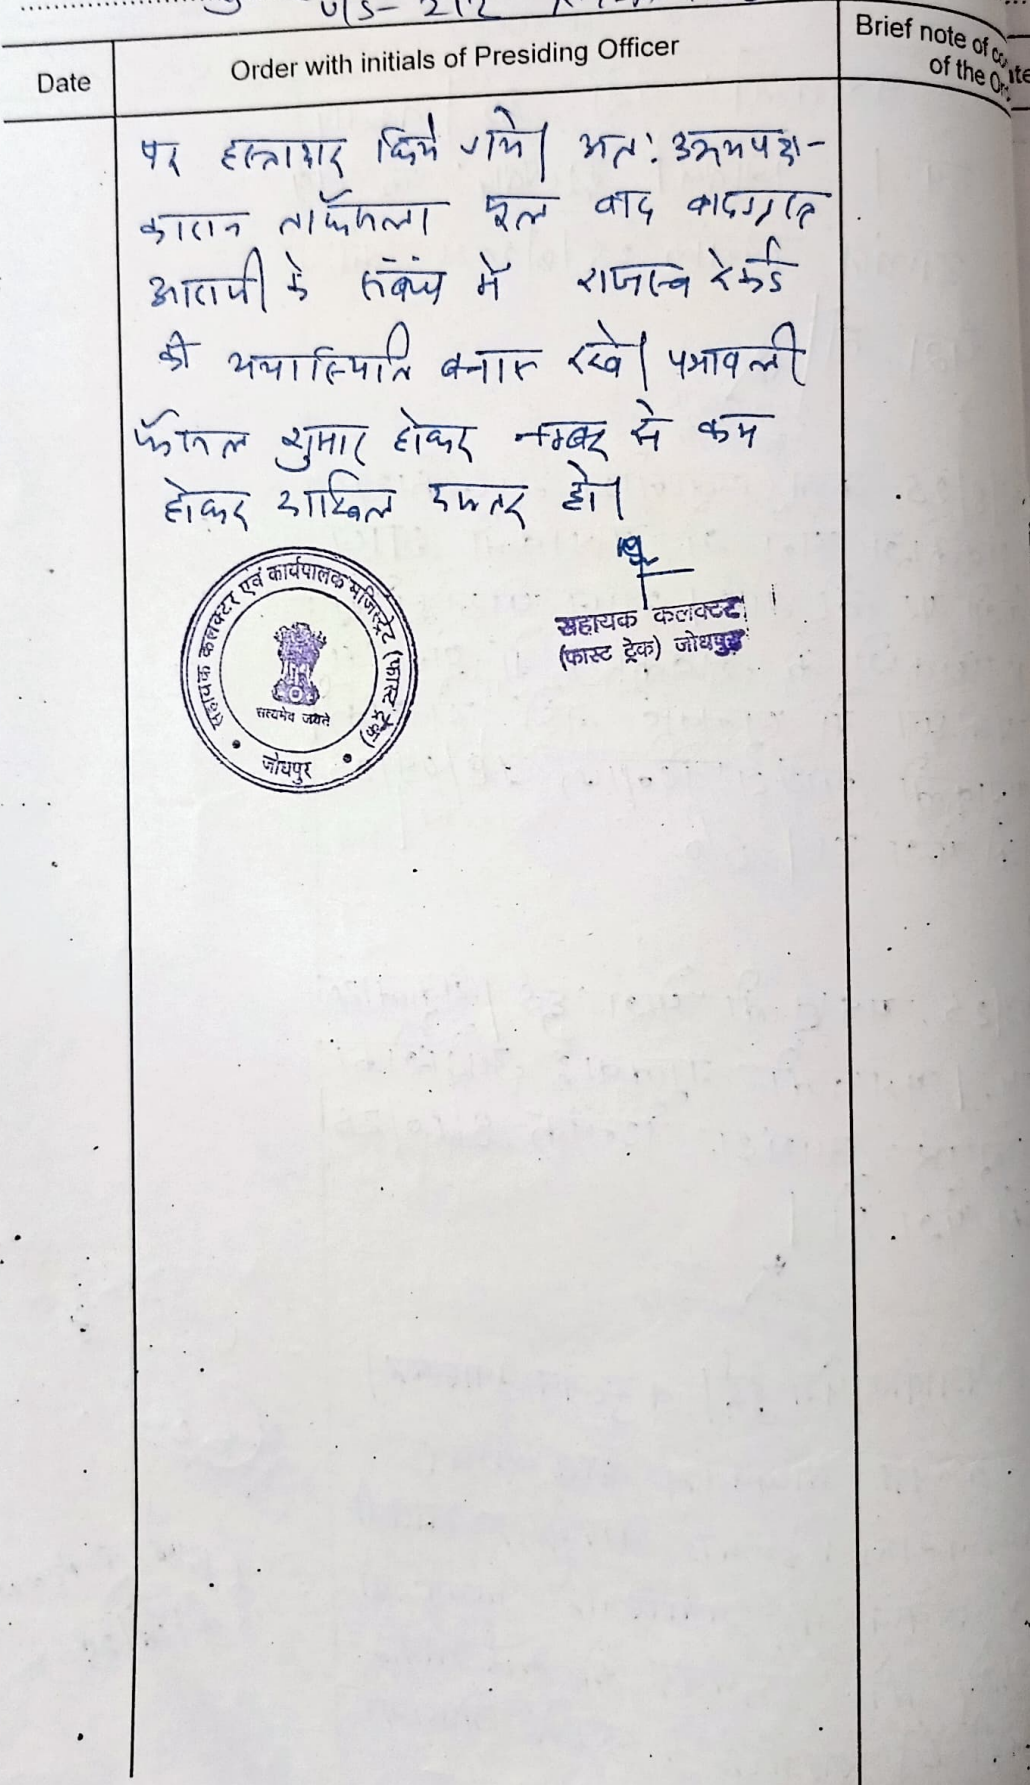 U/S- 212
Date
Order with initials of Presiding Officer
Brief note of
of the
पर हस्ताक्षर किये गये। अतः उभयपक्ष-
कारान ताफैसला मूल वाद वादग्रस्त
आराजी के संबंध में राजस्व रेकर्ड
की यथास्थिति बनाए रखे। पत्रावली
फैसल शुमार होकर नम्बर से कम
होकर दाखिल दफ्तर हो।
सहायक कलक्टर
(फास्ट ट्रेक) जोधपुर
सहायक कलक्टर एवं कार्यपालक मजिस्ट्रेट (फास्ट ट्रेक)
सत्यमेव जयते
जोधपुर